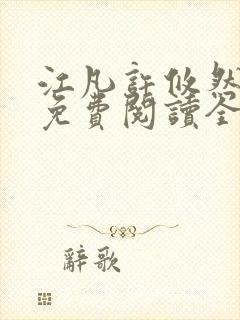 江凡許攸然
免費閱讀全
辭歌